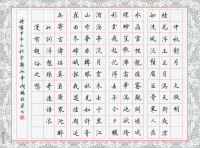 中秋對月 文徵明
桂花浮玉正月滿天街夜涼
如洗風泛鬚眉並骨寒人在
水晶宮裡蛟龍偃蹇觀闕嵯
峨縹緲笙歌沸霜華滿地欲
跨彩雲飛起記得去年今夕釃
酒溪亭淡月雲來去千里江
山昨夢非轉眼秋光如許青
雀西來嫦娥報我道佳期近
矣寄言儔侶莫負廣寒沈醉